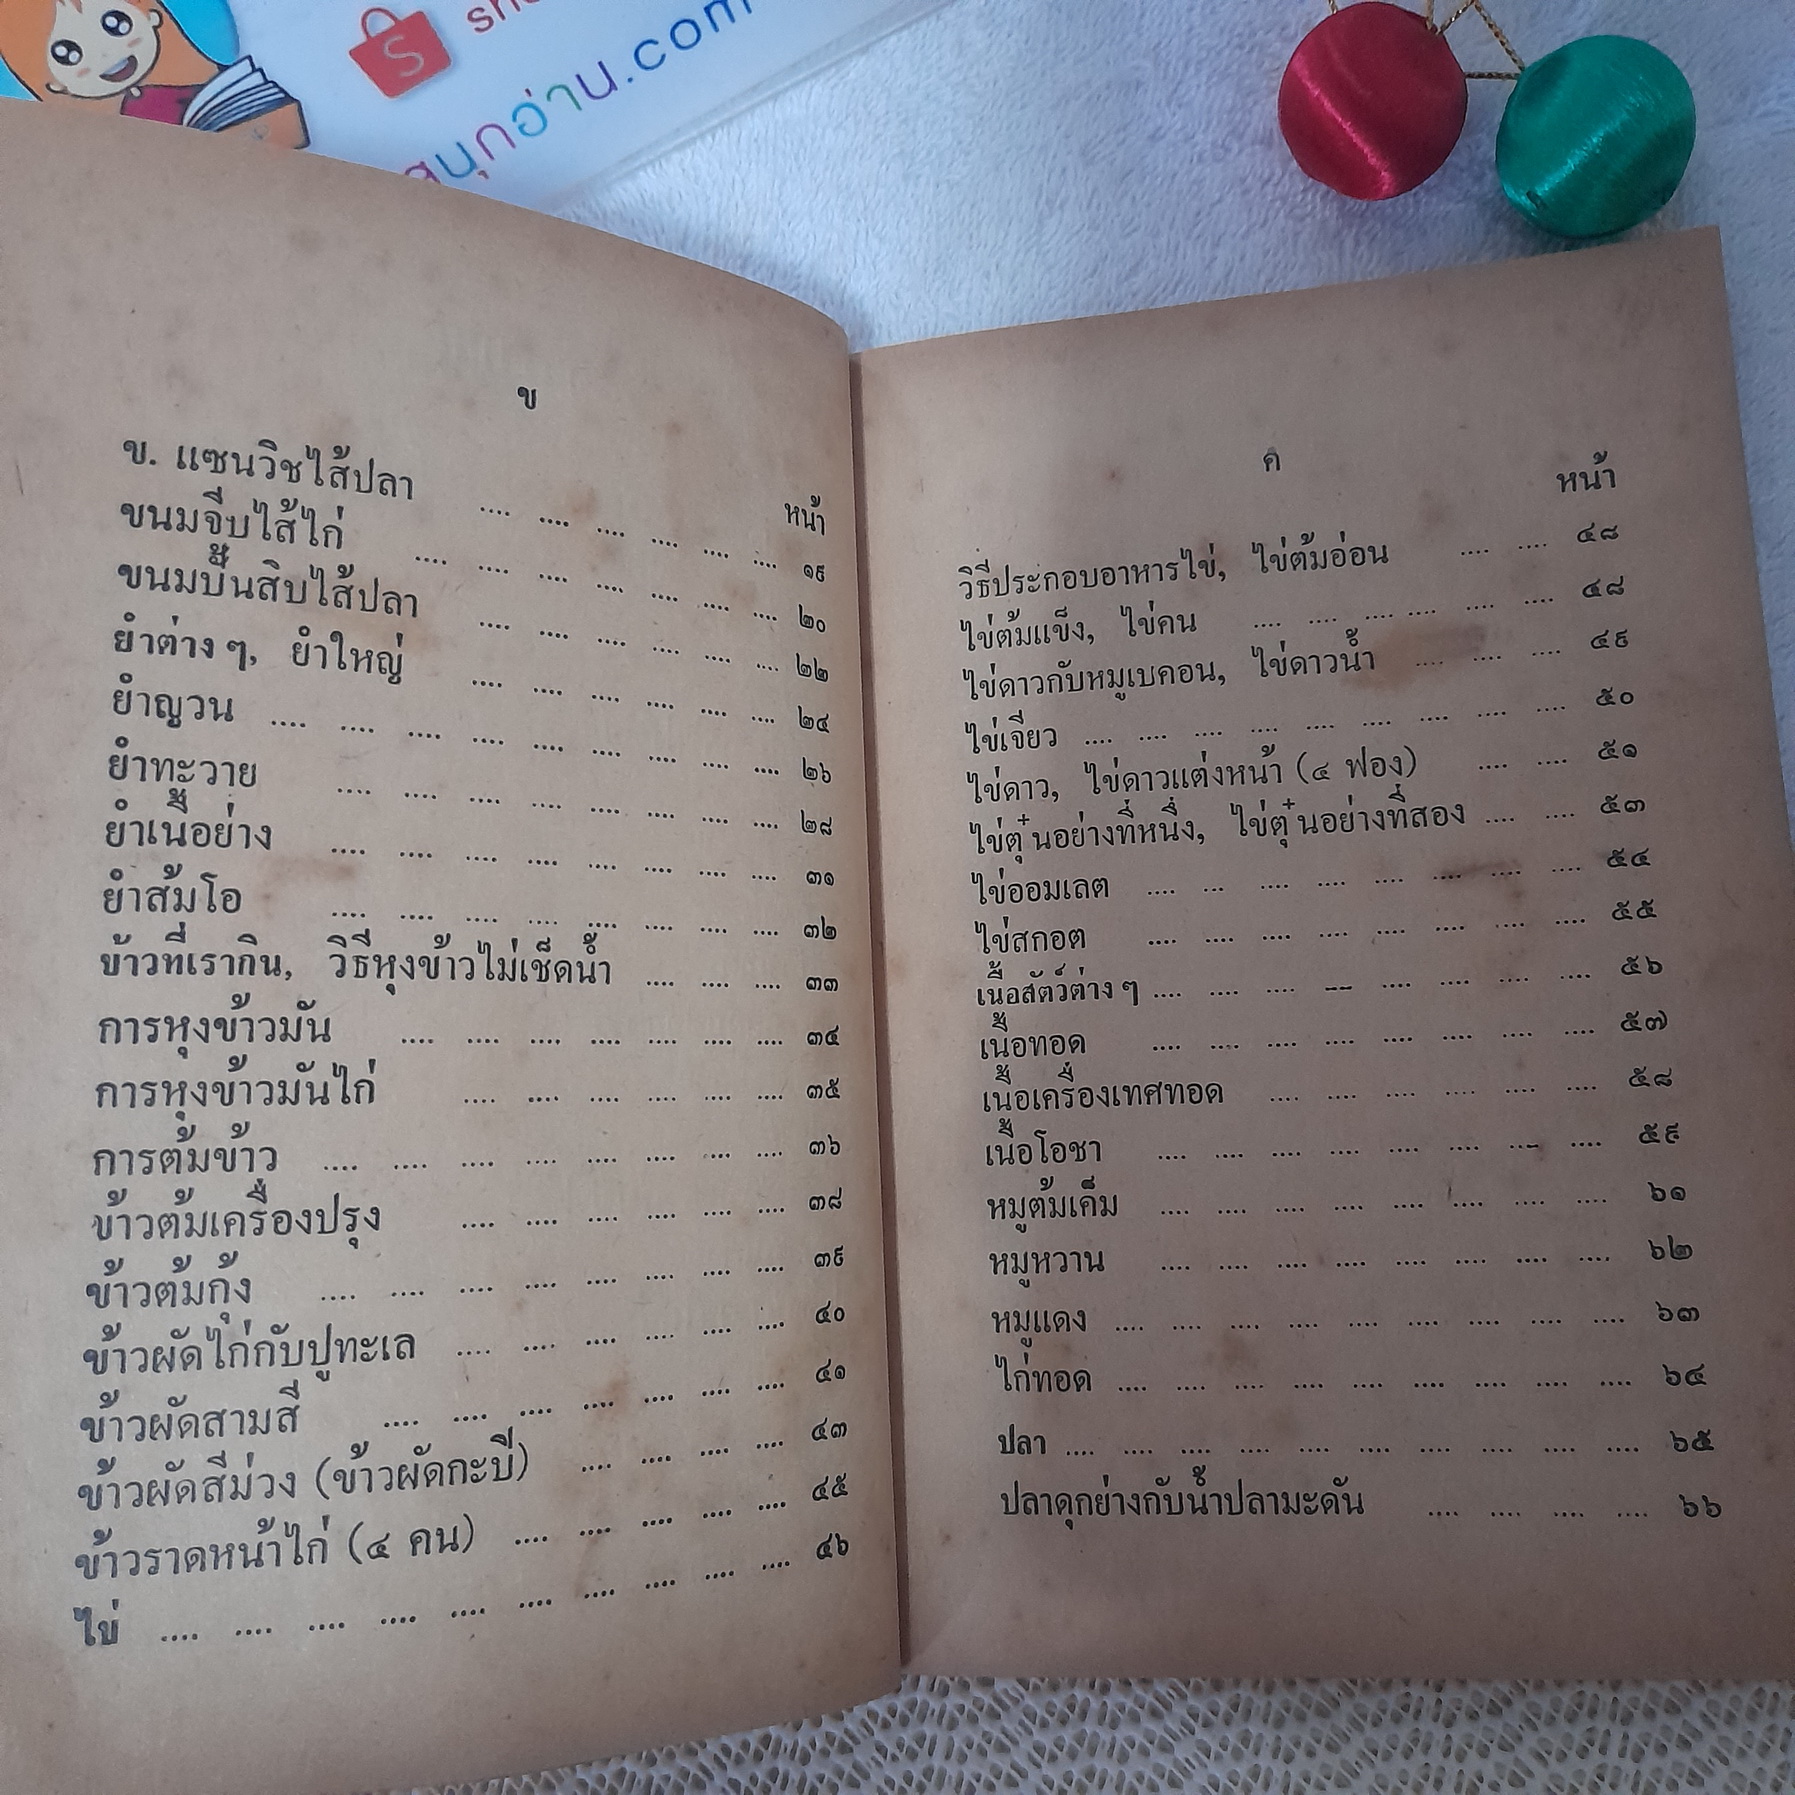 สนุกอ่าน.com
ข
หน้า
ข. แซนวิชไส้ปลา .... .... .... .... .... .... ๑๙
ขนมจีบไส้ไก่ .... .... .... .... .... .... .... ๒๐
ขนมปั้นสิบไส้ปลา .... .... .... .... .... .... ๒๒
ยำต่าง ๆ, ยำใหญ่ .... .... .... .... .... .... ๒๔
ยำญวน .... .... .... .... .... .... .... .... .... ๒๖
ยำทะวาย .... .... .... .... .... .... .... .... ๒๘
ยำเนื้อย่าง .... .... .... .... .... .... .... .... ๓๑
ยำส้มโอ .... .... .... .... .... .... .... .... ๓๒
ข้าวที่เรากิน, วิธีหุงข้าวไม่เช็ดน้ำ .... .... .... ๓๓
การหุงข้าวมัน .... .... .... .... .... .... .... ๓๔
การหุงข้าวมันไก่ .... .... .... .... .... .... ๓๕
การต้มข้าว .... .... .... .... .... .... .... .... ๓๖
ข้าวต้มเครื่องปรุง .... .... .... .... .... .... ๓๘
ข้าวต้มกุ้ง .... .... .... .... .... .... .... .... ๓๙
ข้าวผัดไก่กับปูทะเล .... .... .... .... .... .... ๔๐
ข้าวผัดสามสี .... .... .... .... .... .... .... ๔๑
ข้าวผัดสีม่วง (ข้าวผัดกะปี) .... .... .... .... ๔๓
ข้าวราดหน้าไก่ (๔ คน) .... .... .... .... .... ๔๕
ไข่ .... .... .... .... .... .... .... .... .... .... ๔๖
ค
หน้า
วิธีประกอบอาหารไข่, ไข่ต้มอ่อน .... .... ๔๘
ไข่ต้มแข็ง, ไข่คน .... .... .... .... .... .... ๔๘
ไข่ดาวกับหมูเบคอน, ไข่ดาวน้ำ .... .... .... ๔๙
ไข่เจียว .... .... .... .... .... .... .... .... .... ๕๐
ไข่ดาว, ไข่ดาวแต่งหน้า (๔ ฟอง) .... .... ๕๑
ไข่ตุ๋นอย่างที่หนึ่ง, ไข่ตุ๋นอย่างที่สอง .... .... ๕๓
ไข่ออมเลต .... ... .... .... .... .... .... .... ๕๔
ไข่สกอต .... .... .... .... .... .... .... .... ๕๕
เนื้อสัตว์ต่าง ๆ .... .... .... -- .... .... .... .... ๕๖
เนื้อทอด .... .... .... .... .... .... .... .... ๕๗
เนื้อเครื่องเทศทอด .... .... .... .... .... .... ๕๘
เนื้อโอชา .... .... .... .... .... .... .... .... ๕๙
หมูต้มเค็ม .... .... .... .... .... .... .... .... ๖๑
หมูหวาน .... .... .... .... .... .... .... .... ๖๒
หมูแดง .... .... .... .... .... .... .... .... .... ๖๓
ไก่ทอด .... .... .... .... .... .... .... .... .... ๖๔
ปลา .... .... .... .... .... .... .... .... .... .... ๖๕
ปลาดุกย่างกับน้ำปลามะดัน .... .... .... .... ๖๖